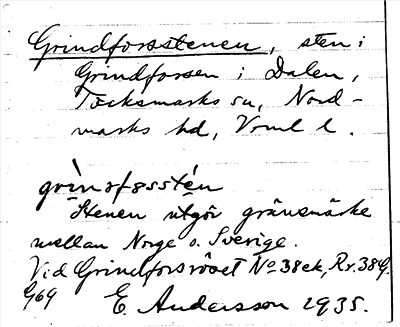 Grindforsstenen, sten i
Grindforsen i Dalen,
Töcksmarks sn, Nord-
marks hd, Vrml l.
grinsfosstén
Stenen utgör gränsmärke
mellan Norge o. Sverige.
Vid Grindforsröset No 38ek, Rr. 38G.
G69 E. Andersson 1935.